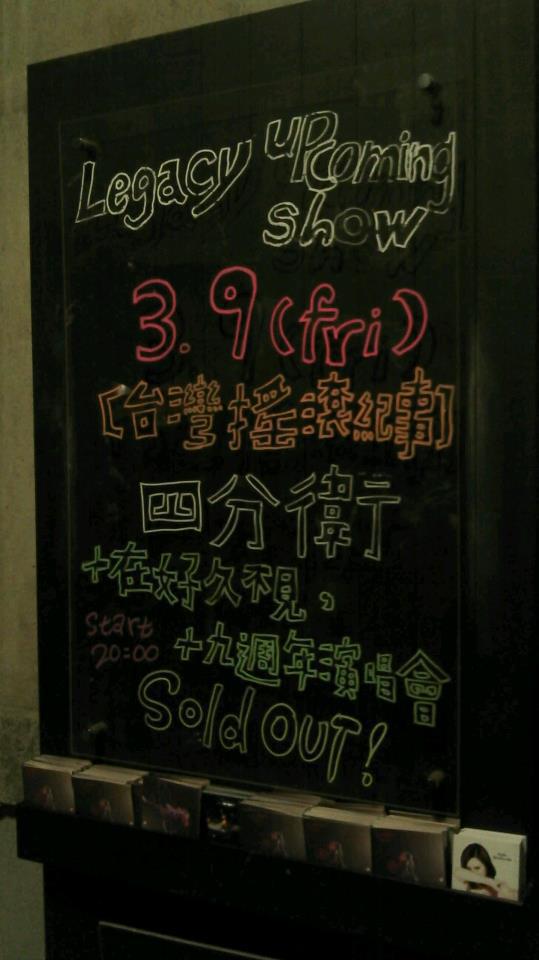 Legacy upcoming
show
3.9(fri)
[台灣搖滾紀事]
四分衛
+在好久不見,
start
20:00
+九週年演唱會
Sold OUT!